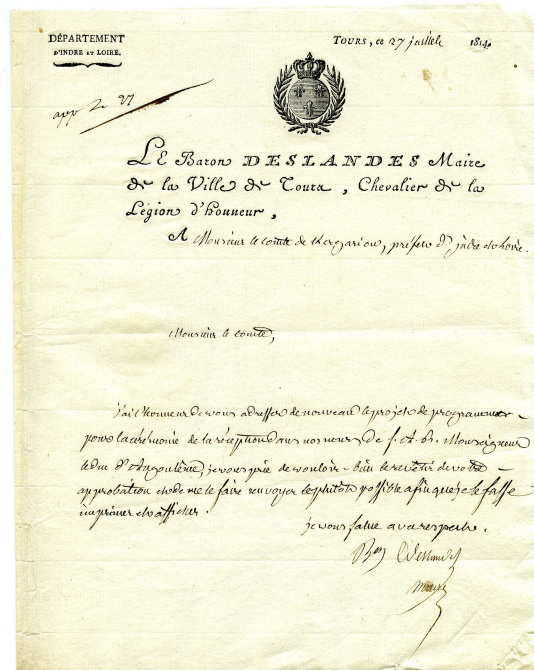 DÉPARTEMENT
D'INDRE ET LOIRE.
TOURS, ce 27 juillet 1814.
app le 27
LE Baron DESLANDES Maire
de la Ville de Tours, Chevalier de la
Légion d'honneur,
A Monsieur le comte de Kergariou, préfet d'indre et loire.
Monsieur le comte,
j'ai l'honneur de vous adresser de nouveau le projet de programme
pour la cérémonie de la réception dans nos murs de S. A. R. Monseigneur
le duc d'Angoulême, je vous prie de vouloir bien le revêtir de votre
approbation et de me le faire renvoyer le plutôt possible afin que je le fasse
imprimer et afficher.
je vous salue avec respect.
Bon Deslandes
maire